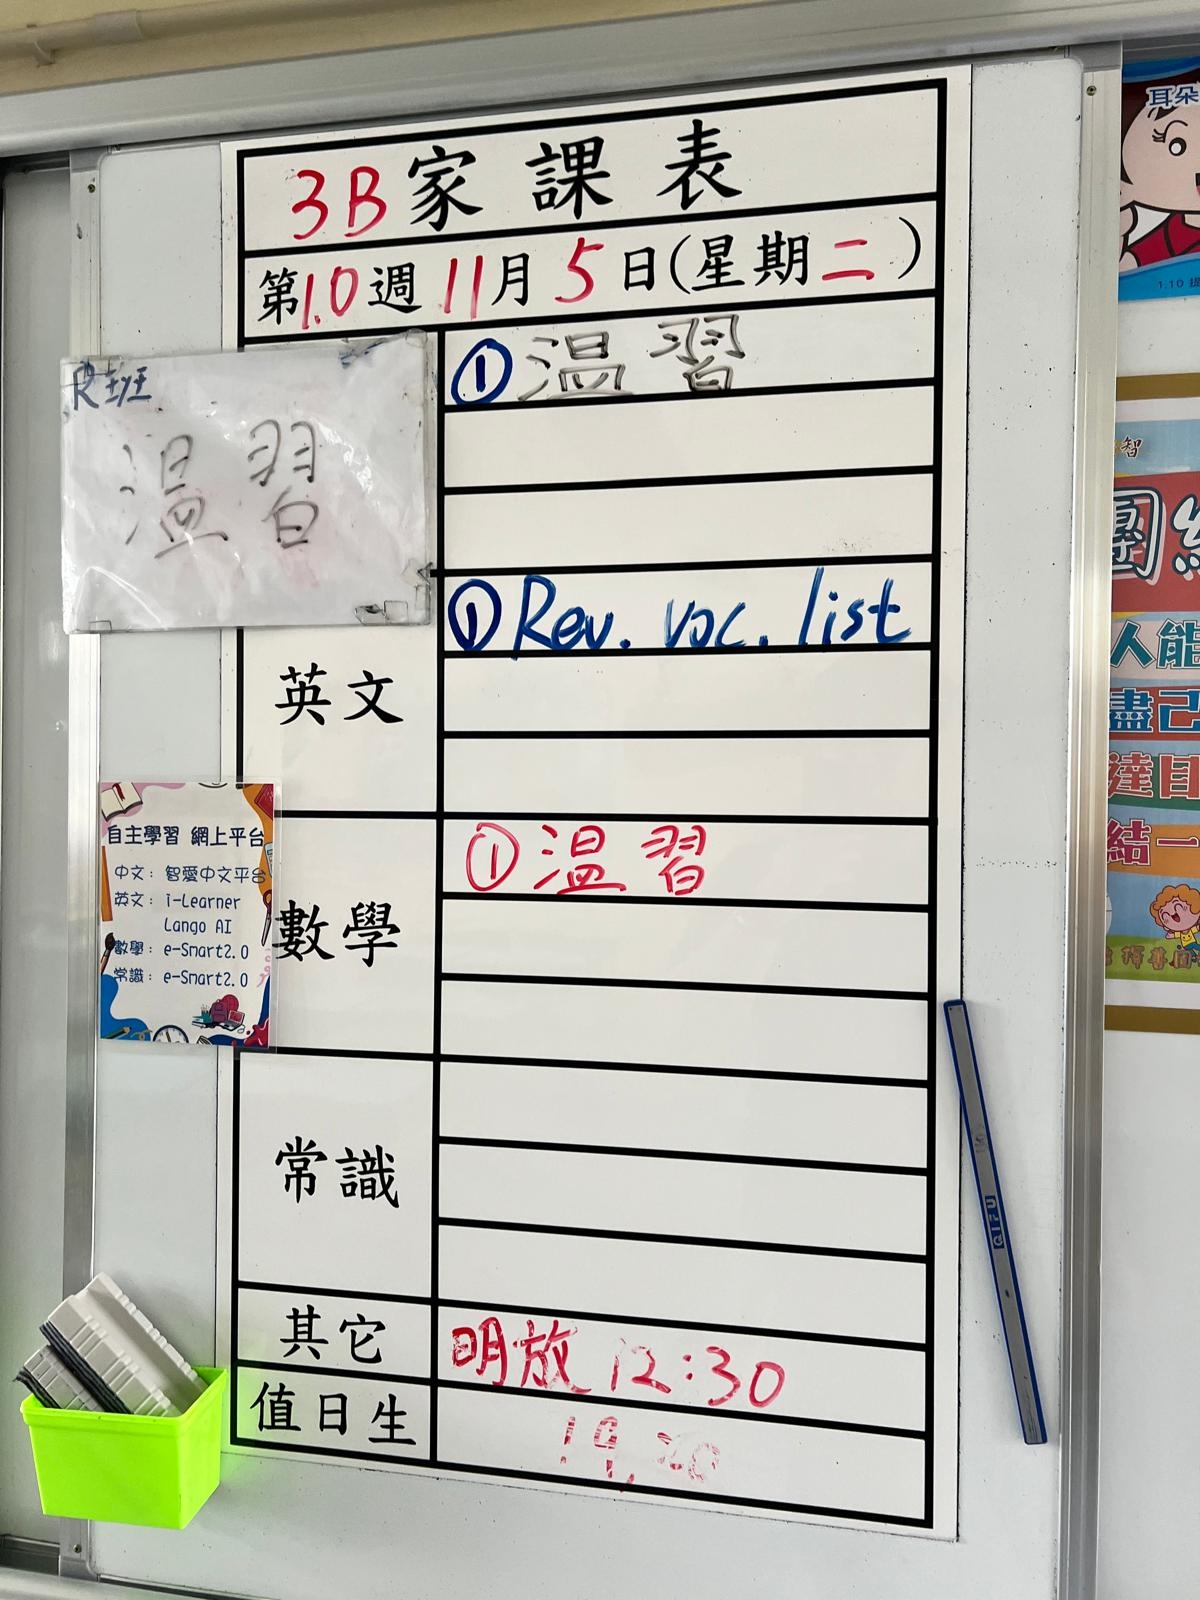 3B家課表
第10週11月5日(星期二)
R班
溫習
①溫習
英文
①Rev. voc. list
數學
①溫習
常識
其它
明放 12:30
值日生
19, 20
自主學習 網上平台
中文：智愛中文平台
英文：i-Learner
Lango AI
數學：e-Smart2.0
常識：e-Smart2.0
QIFU
耳朵
1.10
智
團結
人能
盡己
達目
結一